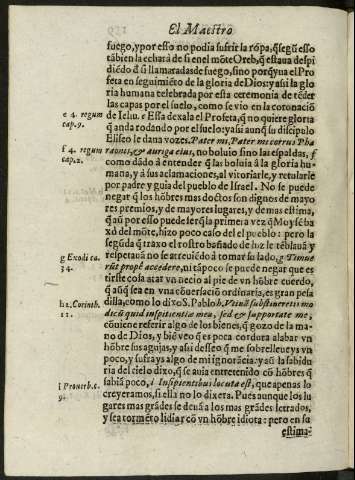 El Maestro
fuego, y por esso no podia sufrir la ropa, q̃ segũ esso
tãbien la echarà de si en el mõte Oreb, q̃ estaua despi
diẽdo d̃ si llamaradas de fuego, sino porq̃ yua el Pro
feta en seguimiẽto de la gloria de Dios: y assi la glo
ria humana telebrada por esta ceremonia de tẽder
las capas por el suelo, como se vio en la coronaciõ
e 4. regum cap. 9.
de Iehu. e Essa dexala el Profeta, q̃ no quiere gloria
q̃ anda rodando por el suelo: y assi aunq̃ su discipulo
Eliseo le daua vozes. Pater mi, Pater mi currus Pha
f 4. regum cap. 2.
raones, & auriga eius, no boluio sino las espaldas, f
como dãdo à entender q̃ las boluia â la gloria hu-
mana, y à sus aclamaciones, al vitoriarle, y retularle
por padre y guia del pueblo de Israel. No se puede
negar q̃ los hõbres mas doctos son dignos de mayo
res premios, y de mayores lugares, y de mas estima,
q̃ aũ por esso puede ser q̃ la primera vez q̃ Moysẽ ba
xó del mõte, hizo poco caso del el pueblo: pero la
segũda q̃ traxo el rostro bañado de luz le tẽblauã y
respetauã no se atreuiẽdo â tomar su lado, g Timue
g Exodi ca 34.
rũt propè accedere, ni tãpoco se puede negar que es
triste cosa atar vn necio al pie de vn hõbre cuerdo,
q̃ aun sea en vna cõuersaciõ ordinaria, es gran pesa
h 2. Corinth. 11.
dilla, como lo dixo S. Pablo h, Vtinã substineretis mo
dicũ quid insipientiæ meæ, sed & supportate me,
cõuiene referir algo de los bienes, q̃ gozo de la ma-
no de Dios, y biẽ veo q̃ es poca cordura alabar vn
hõbre sus agujas, y assi desseo q̃ me sobrelleueys vn
poco, y sufrays algo de mi ignorãcia: y aũ la sabidu
ria del cielo dixo, q̃ se auia entretenido cõ hõbres q̃
i Prouerb. c. 9.
sabiã poco, i Insipientibus locuta est, que apenas lo
creyeramos, si ella no lo dixera. Pues aunque los lu
gares mas grãdes se deuã a los mas grãdes letrados,
y sea tormẽto lidiar cõ vn hõbre idiota: pero en su
estima-